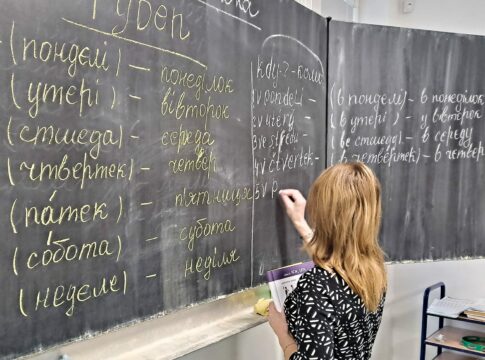 Тýден
(пондєлі) – понеділок
(утері) – вівторок
(стшеда) – середа
(чтвертек) – четвер
(пáтек) – п'ятниця
(сóбота) – субота
(недєлє) – неділя
kdy? – коли?
1 v pondělí –
2 v úterý –
3 ve středu –
4 v čtvrtek –
5 v p
(в понделі) – в понеділок
(в утері) – у вівторок
(ве стшеду) – в середу
(в четвертек) – в четвер